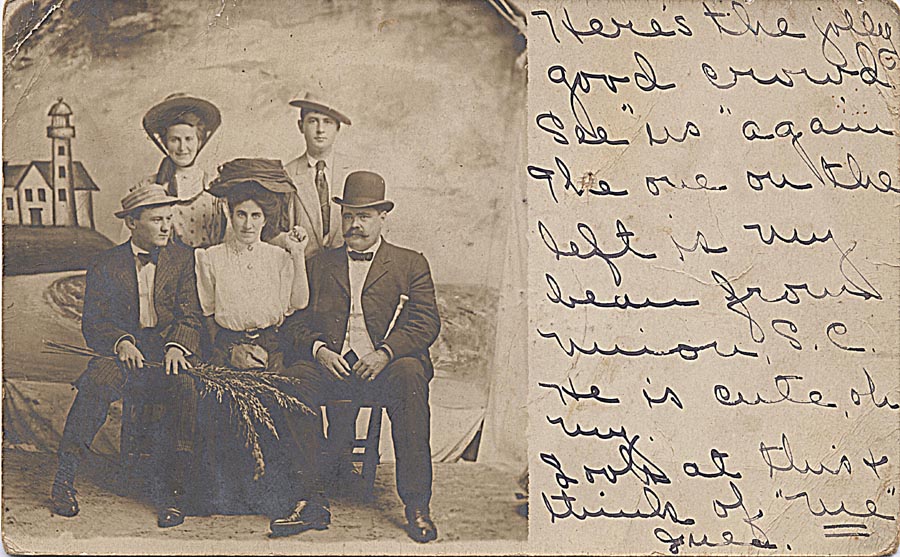 Here's the jolly
good crowd
See "us" again
The one on the
left is my
beau from
Union, S.C.
He is cute, oh
my.
Look at this &
think of "me"